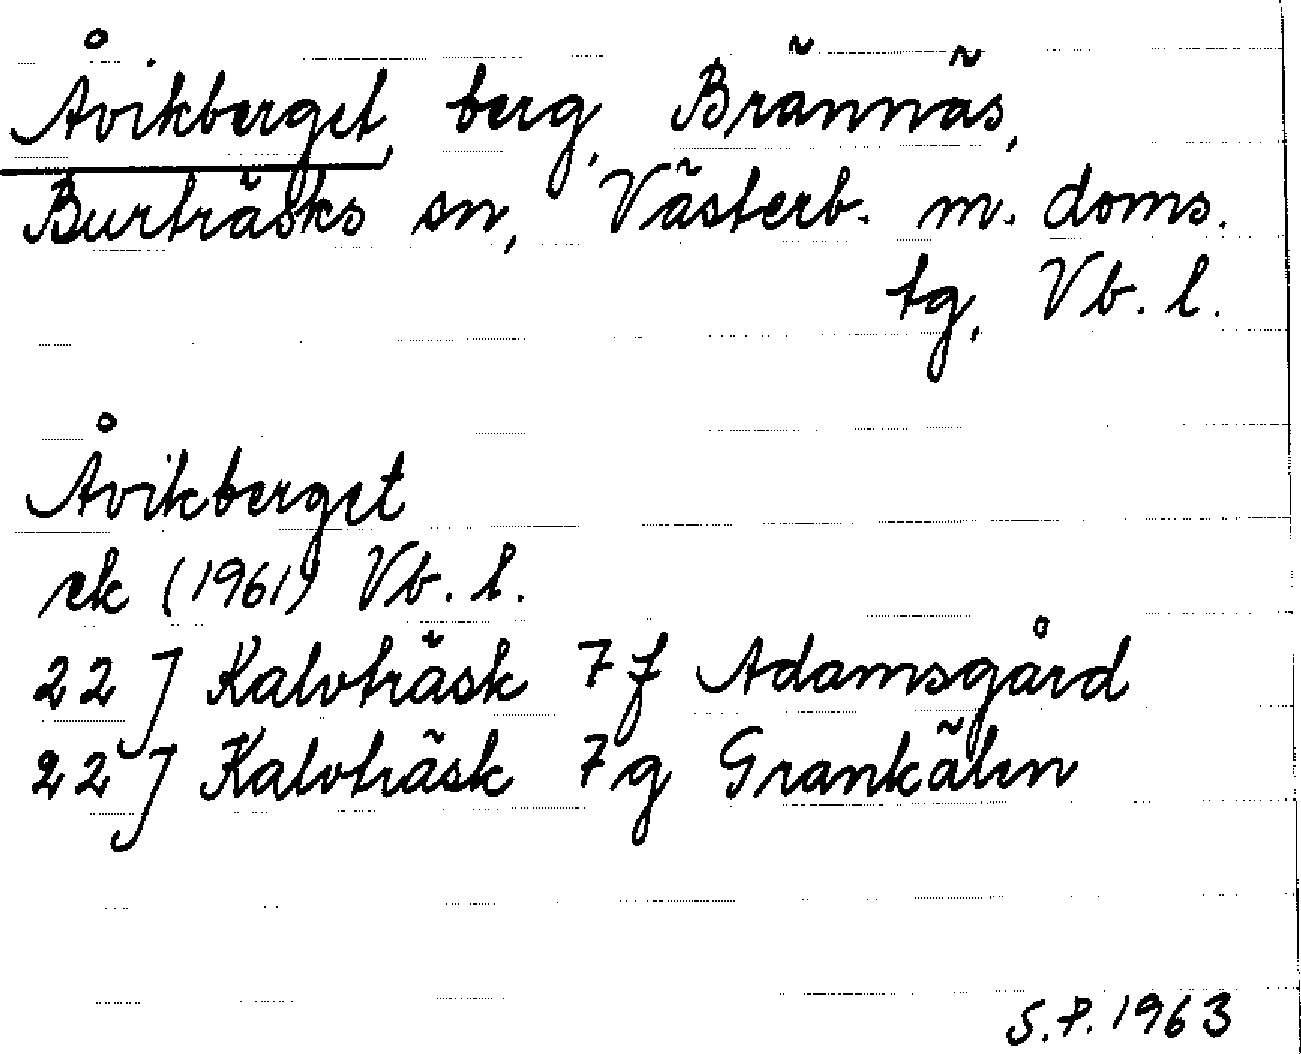 Åvikberget, berg, Brännäs,
Burträsks sn, Västerb. m. doms.
tg, Vb. l.
Åvikberget
ek (1961) Vb. l.
22 J Kalvträsk 7 f Adamsgård
22 J Kalvträsk 7 g Grankälen
S.P. 1963